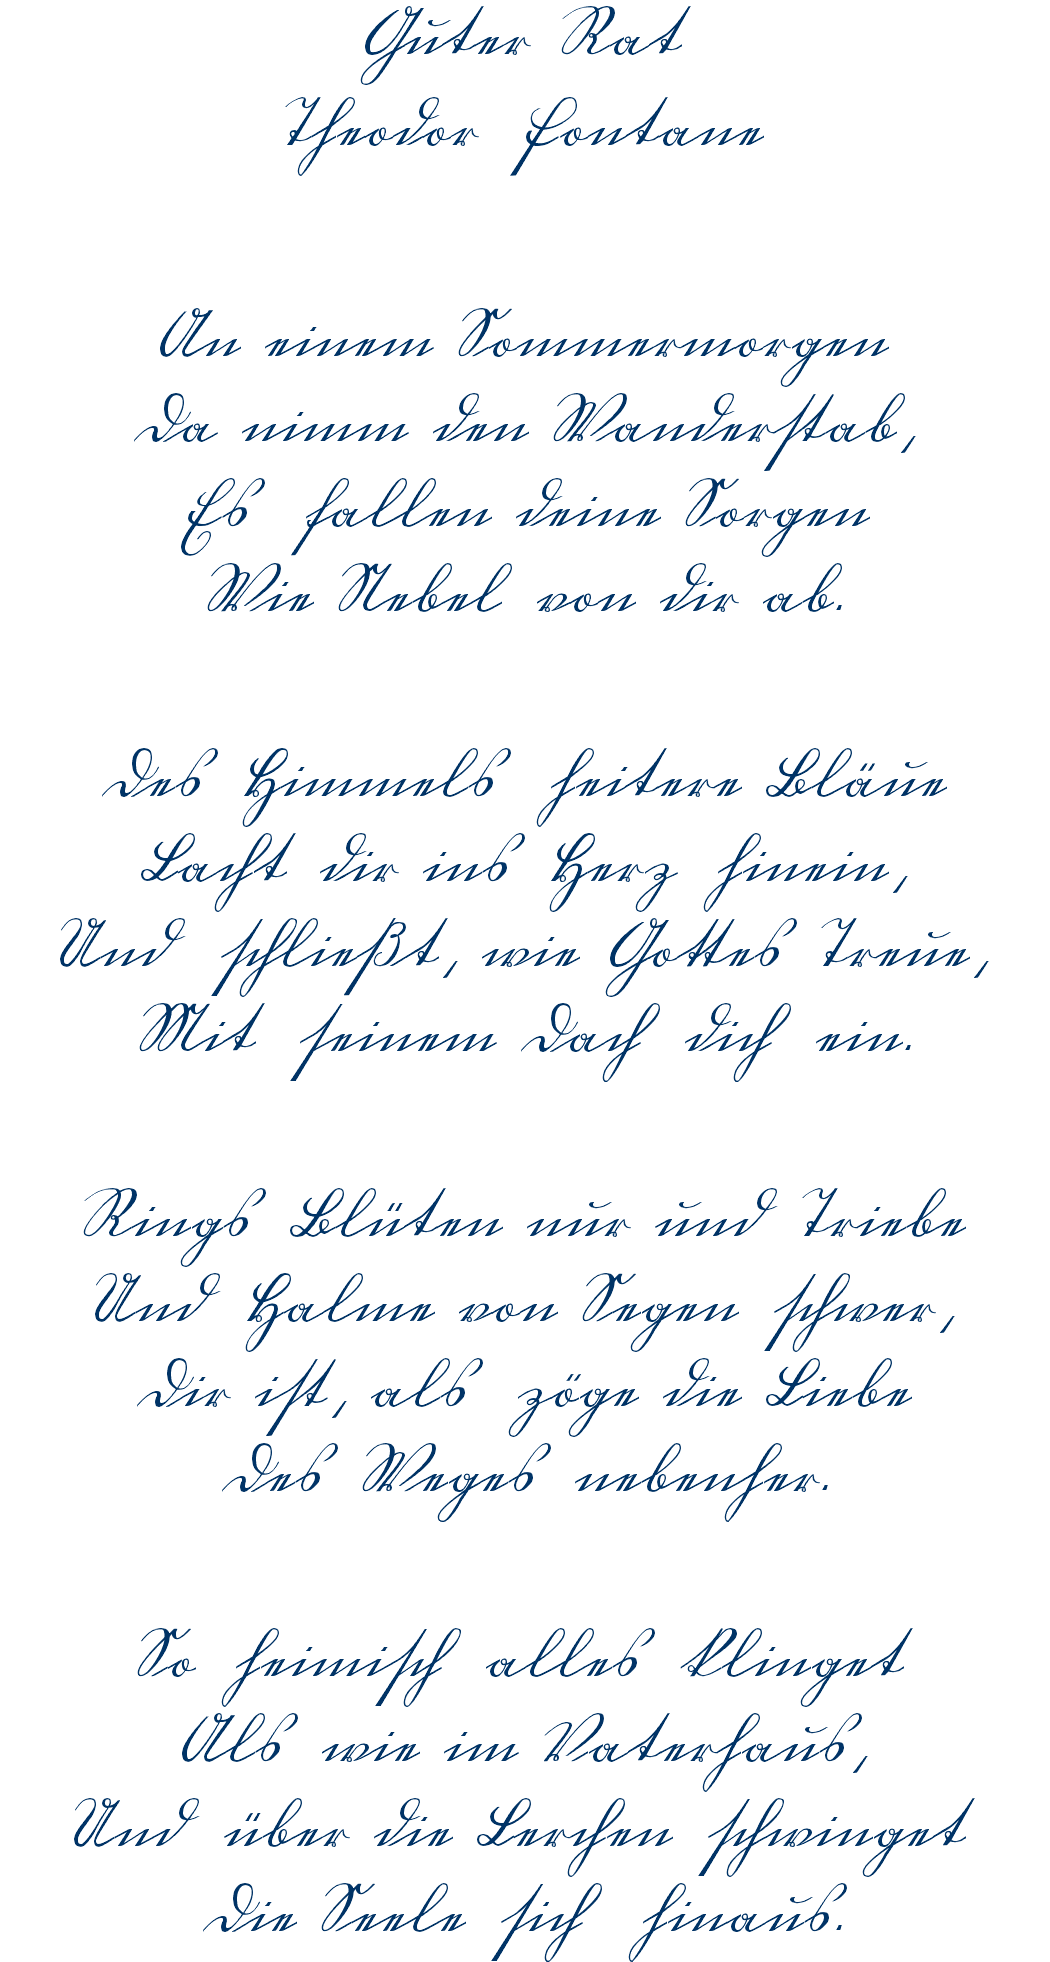 Guter Rat
Theodor Fontane
An einem Sommermorgen
Da nimm den Wanderstab,
Es fallen deine Sorgen
Wie Nebel von dir ab.
Des Himmels heitere Bläue
Lacht dir ins Herz hinein,
Und schließt, wie Gottes Treue,
Mit seinem Dach dich ein.
Rings Blüten nur und Triebe
Und Halme von Segen schwer,
Dir ist, als zöge die Liebe
Des Weges nebenher.
So heimisch alles klinget
Als wie im Vaterhaus,
Und über die Lerchen schwinget
Die Seele sich hinaus.